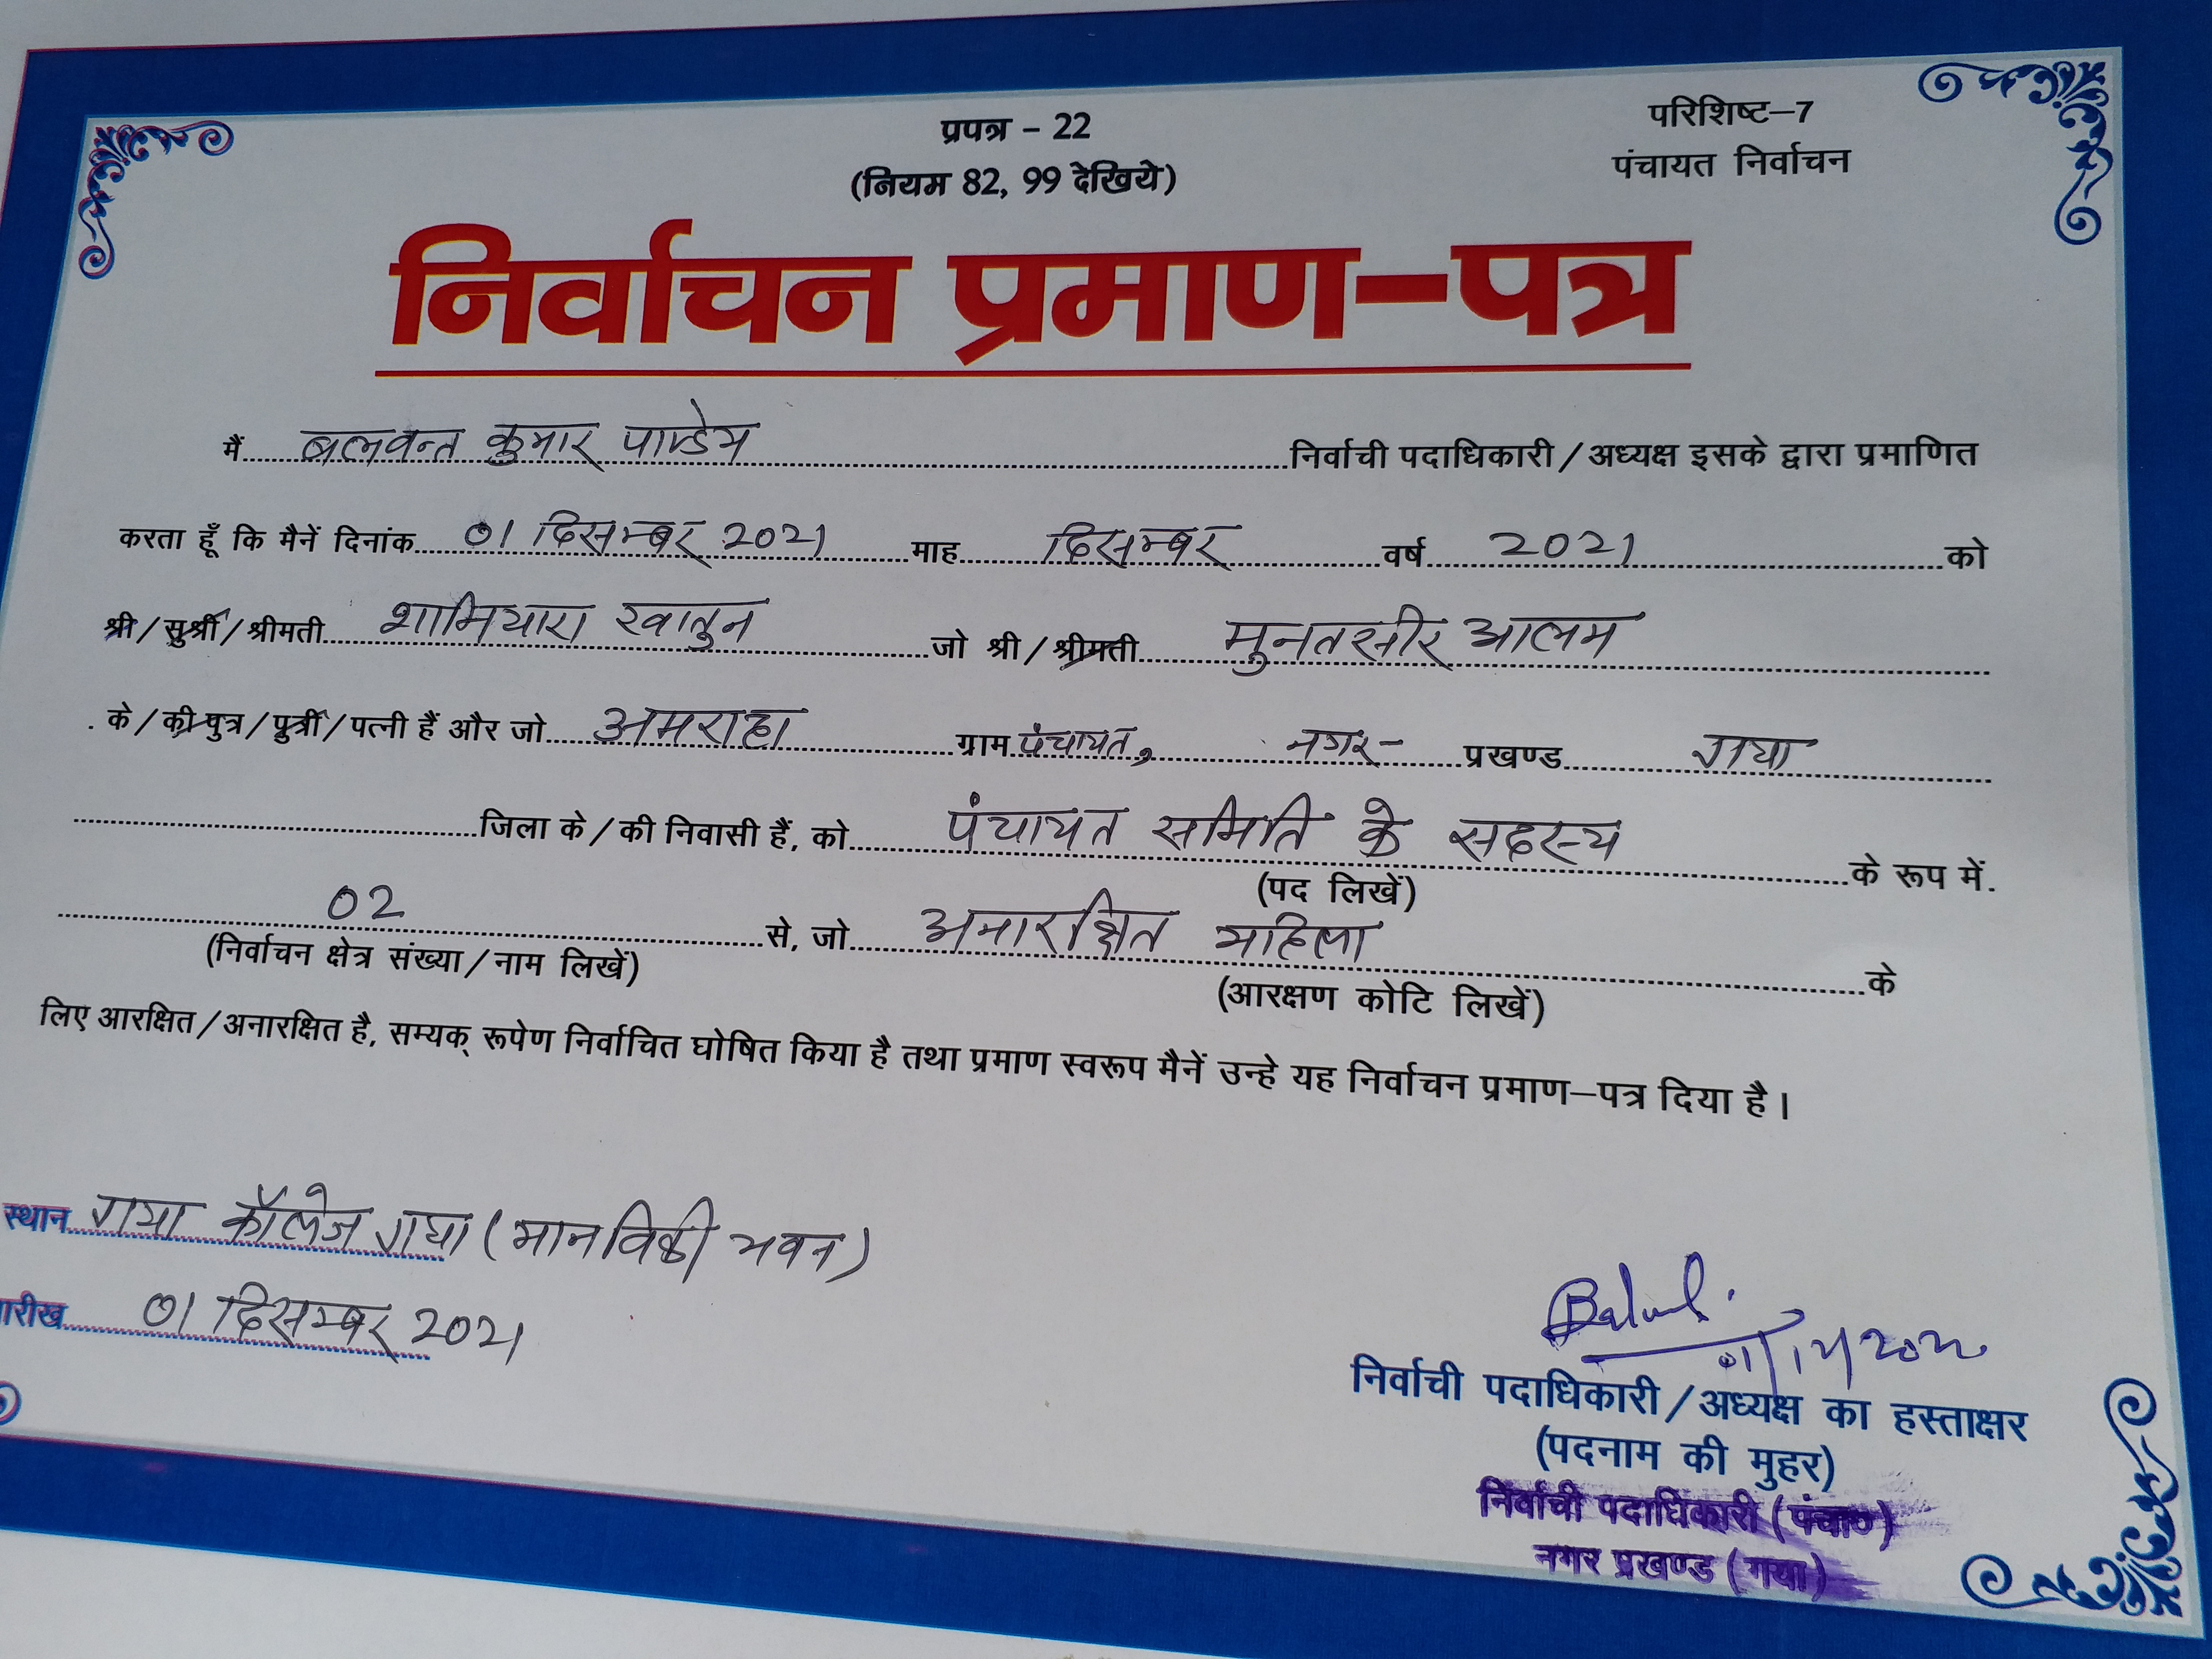 प्रपत्र – 22
(नियम 82, 99 देखिये)
परिशिष्ट–7
पंचायत निर्वाचन
निर्वाचन प्रमाण–पत्र
मैं बलवन्त कुमार पाण्डेय निर्वाची पदाधिकारी / अध्यक्ष इसके द्वारा प्रमाणित
करता हूँ कि मैनें दिनांक 01 दिसम्बर 2021 माह दिसम्बर वर्ष 2021 को
श्री / सुश्री / श्रीमती शामियारा खातुन जो श्री / श्रीमती मुनतसीर आलम
के / की पुत्र / पुत्री / पत्नी हैं और जो अमराहा ग्राम पंचायत, नगर– प्रखण्ड गया
जिला के / की निवासी हैं, को पंचायत समिति के सदस्य के रूप में.
(पद लिखें)
02 से, जो अनारक्षित महिला के
(निर्वाचन क्षेत्र संख्या / नाम लिखें) (आरक्षण कोटि लिखें)
लिए आरक्षित / अनारक्षित है, सम्यक् रूपेण निर्वाचित घोषित किया है तथा प्रमाण स्वरूप मैनें उन्हे यह निर्वाचन प्रमाण–पत्र दिया है।
स्थान गया कॉलेज गया (मानविकी भवन)
तारीख 01 दिसम्बर 2021
निर्वाची पदाधिकारी / अध्यक्ष का हस्ताक्षर
(पदनाम की मुहर)
निर्वाची पदाधिकारी (पंचा०)
नगर प्रखण्ड (गया)